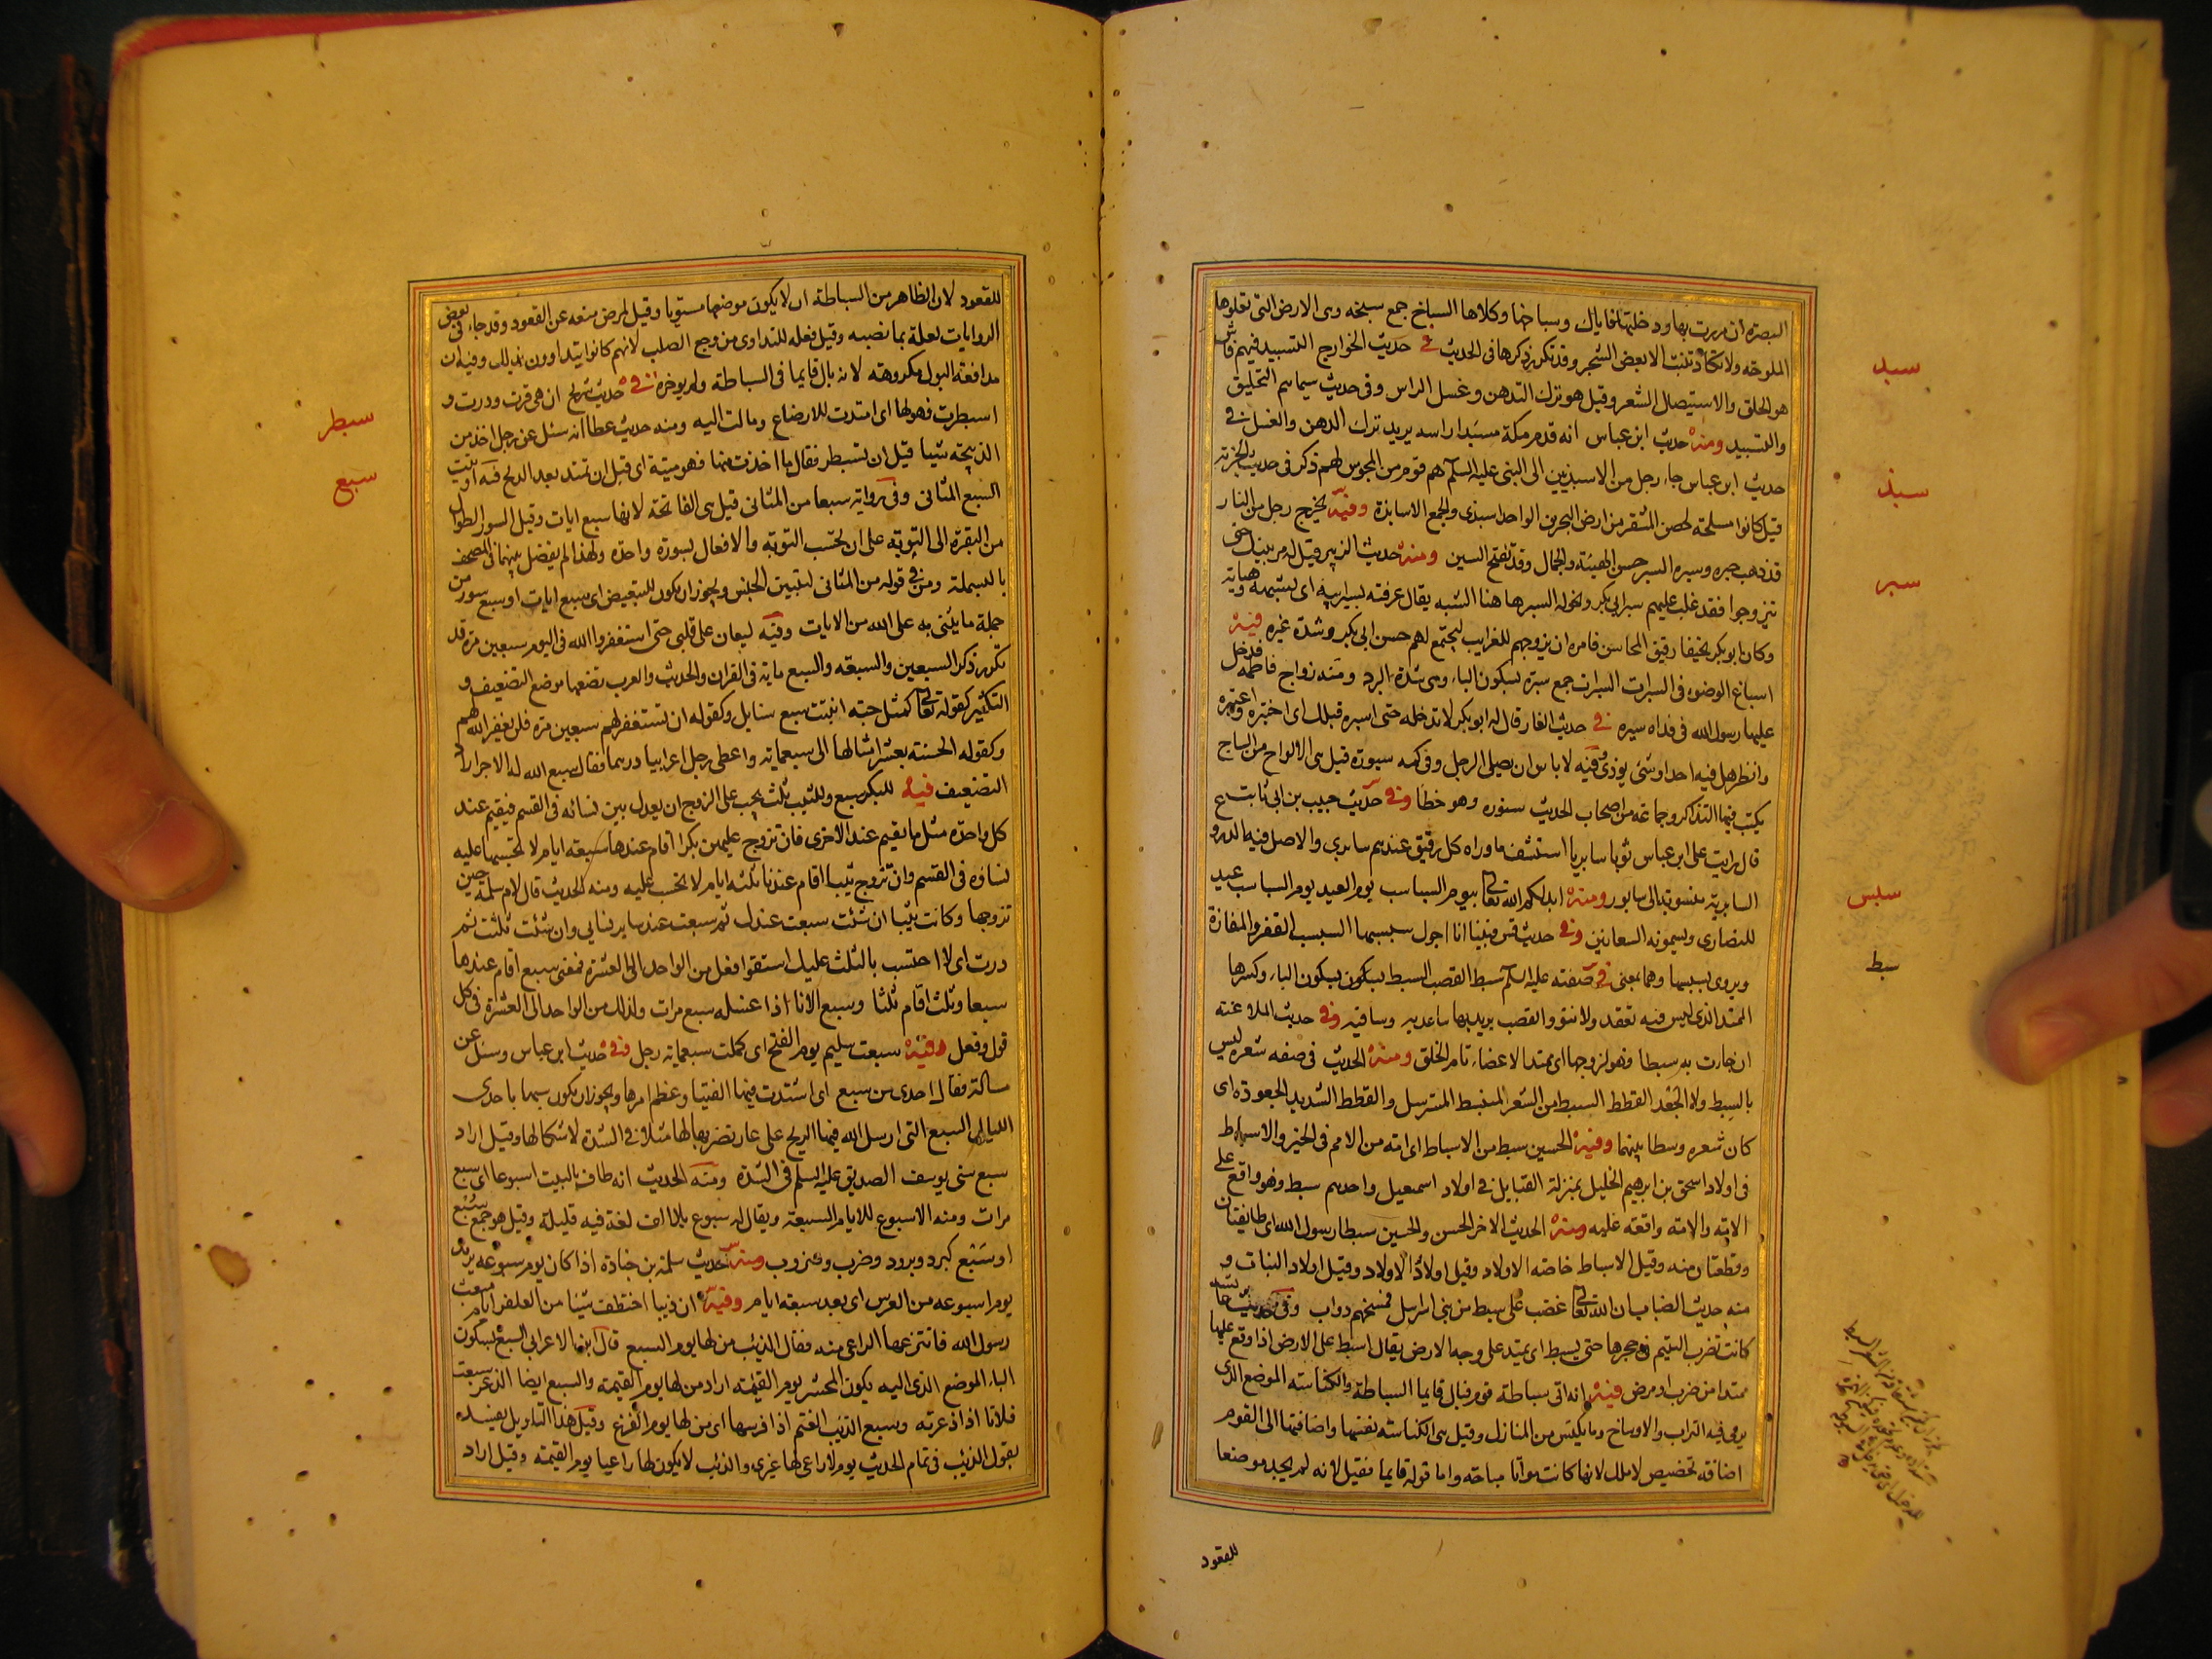 البصرة ان مررت بها ودخلتها فاياك وسباخها وكلاها السباخ جمع سبخة وهى الارض التى تعلوها
الملوحة ولا تكاد تنبت الا بعض الشجر وقد تكرر ذكرها فى الحديث فى حديث الخوارج التسبيد فيهم فاش
سبد
هو الحلق والاستيصال الشعر وقيل هو ترك التدهن وغسل الراس وفى حديث سيماهم التحليق
والتسبيد ومنه حديث ابن عباس انه قدم مكة مسبدا راسه يريد ترك الدهن والغسل فى
حديث ابن عباس جاء رجل من الاسبذيين الى النبى عليه السلم هم قوم من المجوس لهم ذكر فى حديث الجزية
سبذ
قيل كانوا مسلحة لحصن المشقر من ارض البحرين الواحد اسبذى والجمع الاسابذة وفيه يخرج رجل من النار
قد ذهب حبره وسبره السبر حسن الهيئة والجمال وقد تفتح السين ومنه حديث الزبير قيل له مر بنيك حتى
سبر
يتزوجوا فقد غلب عليهم سبر ابى بكر ونحوله السبر هاهنا الشبه يقال عرفته بسبر ابيه اى بشبهه وهياته
وكان ابو بكر نحيفا رقيق المحاسن فامره ان يزوجهم للغرايب ليجتمع لهم حسن ابى بكر وشدة غيره فيه
اسباغ الوضوء فى السبرات السبرات جمع سبرة بسكون الباء وهى شدة البرد ومنه زواج فاطمة فدخل
عليها رسول الله فى غداة سبرة فى حديث الغار قال له ابو بكر لا تدخله حتى اسبره قبلك اى اختبره واعتبره
وانظر هل فيه احد او شئ يوذى وفيه لا باس ان يصلى الرجل وفى كمه سبورة قيل هى الالواح من الساج
يكتب فيها التذاكر وجماعة من اصحاب الحديث ستوره وهو خطا وفى حديث حبيب بن ابى ثابت ع
قال رايت على ابن عباس ثوبا سابريا استشف ما وراه كل رقيق عندهم سابرى والاصل فيه الدرو
السابرية منسوبة الى سابور ومنه ابدلكم الله تعالى بيوم السباسب يوم العيد يوم السباسب عيد
سبس
للنصارى ويسمونه السعانين وفى حديث قس فبينا انا اجول سبسبها السبسب القفر والمفازة
ويروى بسبسها وهما بمعنى فى صفته عليه السلم سبط القصب السبط بسكون بسكون الباء وكسرها
سبط
الممتد الذى ليس فيه تعقد ولا نتوء والقصب يريد بها ساعديه وساقيه وفى حديث الملاعنة
ان جاءت به سبطا فهو لزوجها اى ممتد الاعضاء تام الخلق ومنه الحديث فى صفة شعره ليس
بالسبط ولا الجعد القطط السبط من الشعر المنبسط المسترسل والقطط الشديد الجعودة اى
كان شعره وسطا بينهما وفيه الحسين سبط من الاسباط اى امة من الامم فى الخير والاسباط
فى اولاد اسحق بن ابرهيم الخليل بمنزلة القبايل فى اولاد اسمعيل واحدهم سبط وهو واقع على
الامة والامة واقعة عليه ومنه الحديث الاخر الحسن والحسين سبطا رسول الله اى طايفتان
وقطعتان منه وقيل الاسباط خاصة الاولاد وقيل اولاد الاولاد وقيل اولاد البنات و
منه حديث الضباب ان الله تعالى غضب على سبط من بنى اسرايل فمسخهم دواب وفى حديث عايشة
كانت تضرب اليتيم فى حجرها حتى يسبط اى يمتد على وجه الارض يقال اسبط على الارض اذا وقع عليها
ممتدا من ضرب او مرض فيه انه اتى سباطة قوم فبال قايما السباطة والكناسة الموضع الذى
يرمى فيه التراب والاوساخ وما يكنس من المنازل وقيل هى الكناسة نفسها واضافتها الى القوم
اضافة تخصيص لا ملك لانها كانت مواتا مباحة واما قوله قايما فقيل لانه لم يجد موضعا
للقعود
للقعود لان الظاهر من السباطة ان لا يكون موضعها مستويا وقيل لمرض منعه عن القعود وقد جاء فى بعض
الروايات لعلة بمابضيه وقيل فعله للتداوى من وجع الصلب لانهم كانوا يتداوون بذلك وفيه ان
مدافعة البول مكروهة لانه بال قايما فى السباطة ولم يوخره فى حديث شريح ان هى قرت ودرت و
سبطر
اسبطرت فهو لها اى امتدت للارضاع ومالت اليه ومنه حديث عطا انه سئل عن رجل اخذ من
الذبيحة شيئا قبل ان تسبطر فقال ما اخذت منها فهو ميتة اى قبل ان تمتد بعد الذبح فيه اوتيت
سبع
السبع المثانى وفى رواية سبعا من المثانى قيل هى الفاتحة لانها سبع ايات وقيل السور الطوال
من البقرة الى التوبة على ان تحسب التوبة والانفال بسورة واحدة ولهذا لم يفصل بينهما فى المصحف
بالبسملة ومن فى قوله من المثانى لتبيين الجنس ويجوز ان يكون للتبعيض اى سبع ايات او سبع سور من
جملة ما يثنى به على الله من الايات وفيه ليغان على قلبى حتى استغفروا الله فى اليوم سبعين مرة قد
تكرر ذكر السبعين والسبعة والسبع ماية فى القران والحديث والعرب تضعها موضع التضعيف و
التكثير كقوله تعالى كمثل حبة انبتت سبع سنابل وكقوله ان تستغفر لهم سبعين مرة فلن يغفر الله لهم
وكقوله الحسنة بعشر امثالها الى سبعماية واعطى رجل اعرابيا درهما فقال سبع الله له الاجر اراد
التضعيف فيه للبكر سبع وللثيب ثلث يجب على الزوج ان يعدل بين نسائه فى القسم فيقيم عند
كل واحدة مثل ما يقيم عند الاخرى فان تزوج عليهن بكرا اقام عندها سبعة ايام لا تحسبها عليه
نساؤه فى القسم وان تزوج ثيبا اقام عندها ثلثة ايام لا تحسب عليه ومنه الحديث قال لام سلمة حين
تزوجها وكانت ثيبا ان شئت سبعت عندك ثم سبعت عند ساير نسايى وان شئت ثلثت ثم
درت اى لا احتسب بالثلث عليك استقوا فعل من الواحد الى العشرة فمعنى سبع اقام عندها
سبعا وثلث اقام ثلثا وسبع الانا اذا غسله سبع مرات ولذلك من الواحد الى العشرة فى كل
قول وفعل وفيه سبعت سليم يوم الفتح اى كملت سبعماية رجل فى حديث ابن عباس وسئل عن
مسالة فقال احدى من سبع اى اشتدت فيها الفتيا وعظم امرها ويجوز ان يكون شبهها باحدى
الليالى السبع التى ارسل الله فيها الريح على عاد فضربها لها مثلا فى الشدة لاشكالها وقيل اراد
سبع سنى يوسف الصديق عليه السلم فى الشدة ومنه الحديث انه طاف بالبيت اسبوعا اى سبع
مرات ومنه الاسبوع للايام السبعة ويقال له سبوع بلا الف لغة فيه قليلة وقيل هو جمع سبع
او سبع كبرد وبرود وضرب وضروب ومنه حديث سلمة بن جنادة اذا كان يوم سبوعه يريد
يوم اسبوعه من العرس اى بعد سبعة ايام وفيه ان ذيبا اختطف شيئا من الغنم ايام مبعث
رسول الله فانتزعها الراعى منه فقال الذيب من لها يوم السبع قال ابن الاعرابى السبع بسكون
الباء الموضع الذى اليه يكون المحشر يوم القيمة اراد من لها يوم القيمة والسبع ايضا الذعر سبعت
فلانا اذا ذعرته وسبع الذئب الغنم اذا فرسها اى من لها يوم الفزع وقيل هذا التاويل يفسده
بقول الذئب فى تمام الحديث يوم لا راعى لها غيرى والذئب لا يكون لها راعيا يوم القيمة وقيل اراد